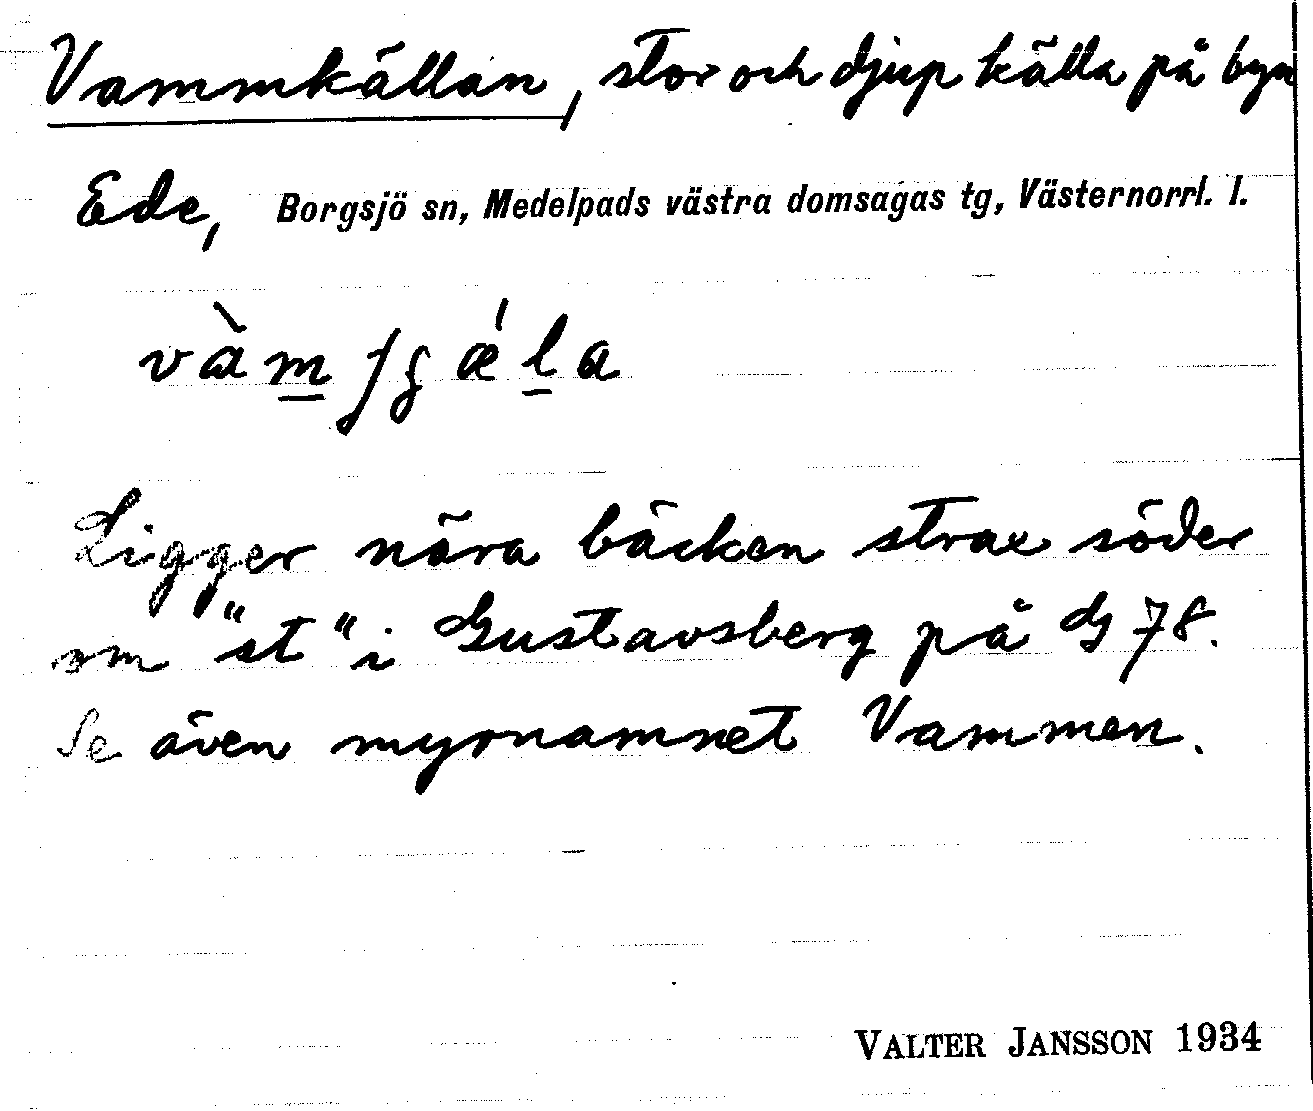 Vammkällan, stor och djup källa på byn
Ede, Borgsjö sn, Medelpads västra domsagas tg, Västernorrl. l.
Ligger nära bäcken strax söder
om "st" i Gustavsberg på dg 78.
Se även myrnamnet Vammen.
VALTER JANSSON 1934